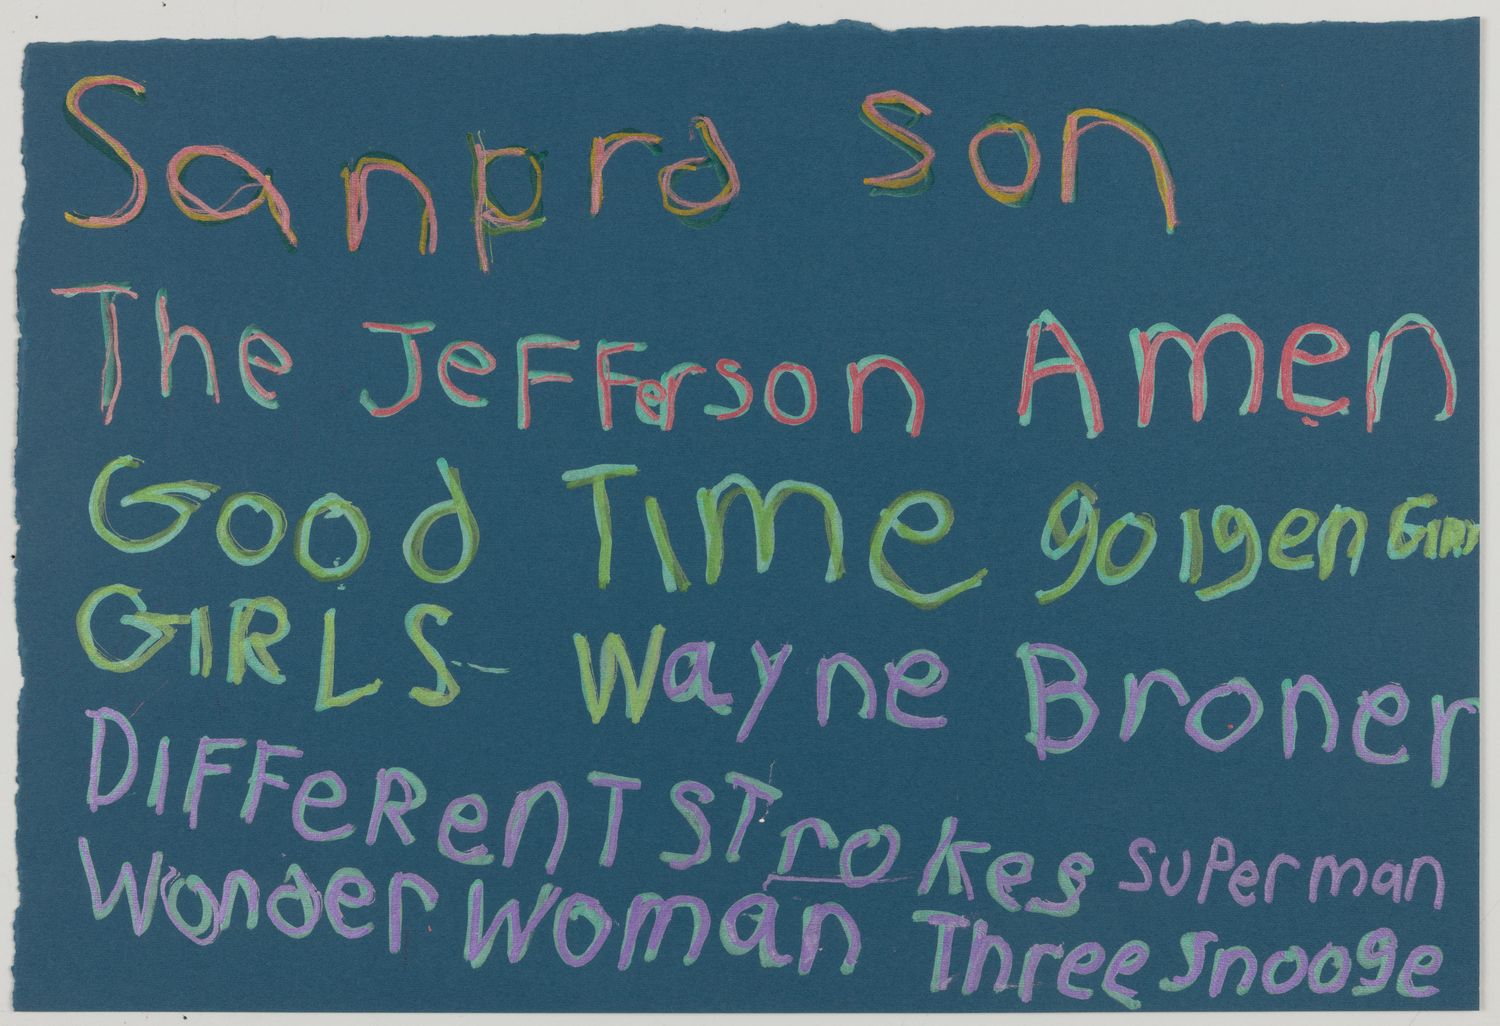 Sanprd Son
The Jefferson Amen
Good Time goigen GIRl
GIRLS Wayne Broner
DIFFeRenT STrokes Superman
Wonder Woman Three Snooge